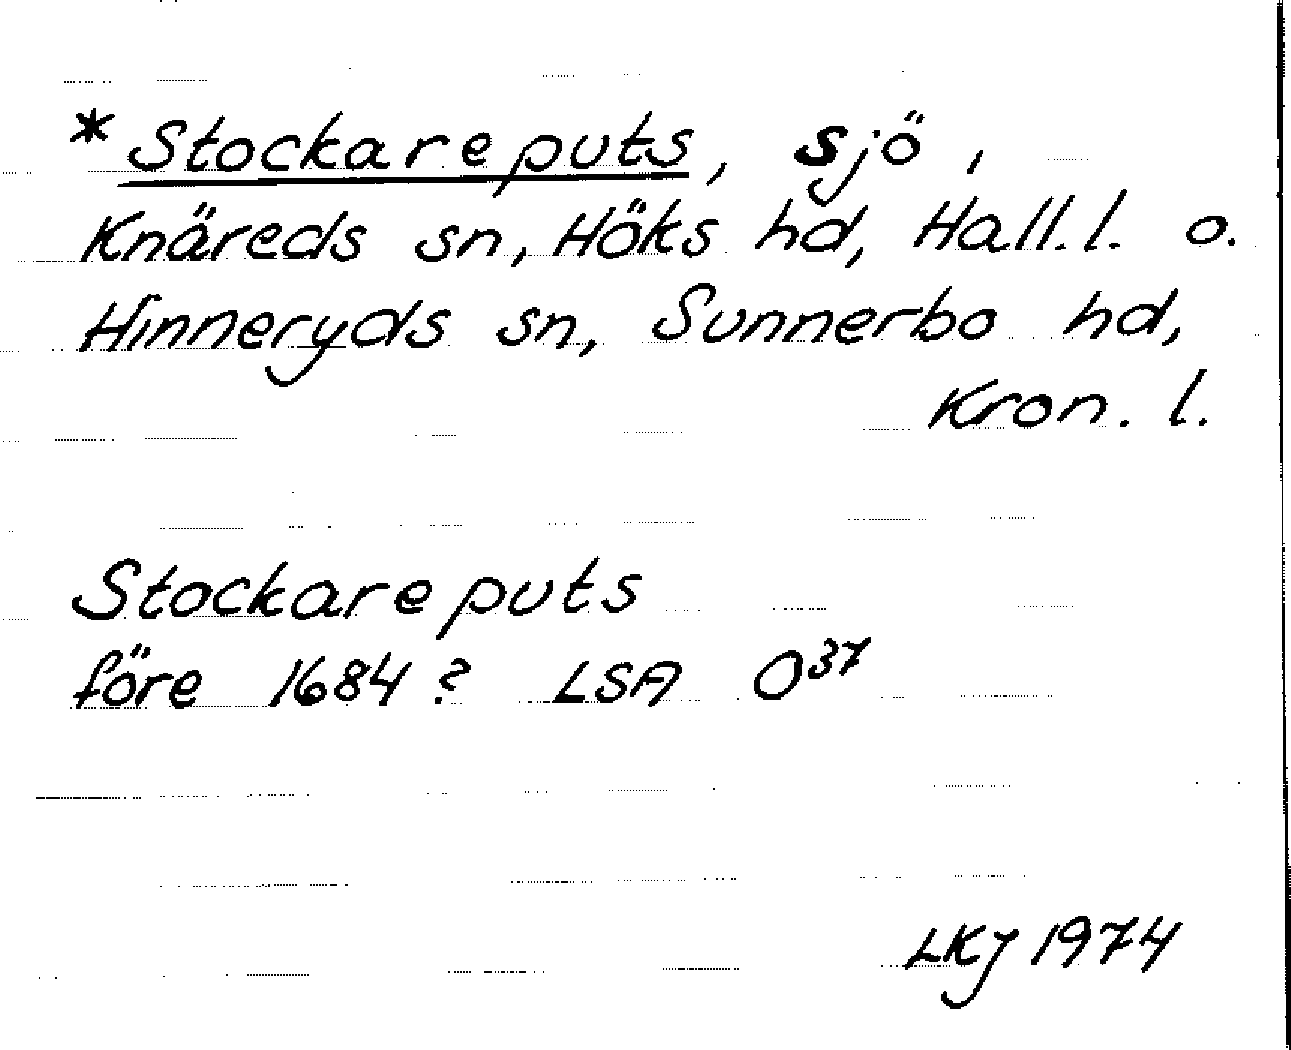 *Stockareputs, sjö,
Knäreds sn, Höks hd, Hall.l. o.
Hinneryds sn, Sunnerbo hd,
Kron. l.
Stockareputs
före 1684? LSA O³⁷
LKJ 1974